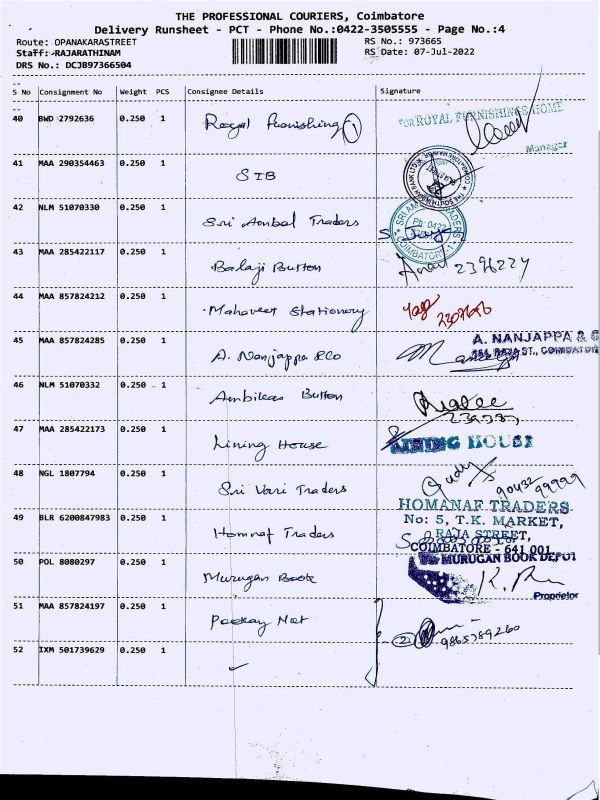 THE PROFESSIONAL COURIERS, Coimbatore
Delivery Runsheet - PCT - Phone No.:0422-3505555 - Page No.:4
Route: OPANAKARASTREET RS No.: 973665
Staff: RAJARATHINAM RS Date: 07-Jul-2022
DRS No.: DCJB97366504
S No Consignment No Weight PCS Consignee Details Signature
40 BWD 2792636 0.250 1 Royal Furnishing 1 FOR ROYAL FURNISHINGS HOME
Manager
41 MAA 290354463 0.250 1 SIB
42 NLM 51070330 0.250 1 Sri Ambal Traders
43 MAA 285422117 0.250 1 Balaji Button 2396224
44 MAA 857824212 0.250 1 Mahaveer Stationery
45 MAA 857824285 0.250 1 A. Nanjappa & Co A. NANJAPPA & C
46 NLM 51070332 0.250 1 Ambikas Button
47 MAA 285422173 0.250 1 Lining House LINING HOUSE
48 NGL 1807794 0.250 1 Sri Vari Traders 90432 99999
49 BLR 6200847983 0.250 1 Homnaf Traders HOMANAF TRADERS
No: 5, T.K. MARKET,
RAJA STREET,
COIMBATORE - 641 001
50 POL 8080297 0.250 1 Murugan Book MURUGAN BOOK DEPOT
Proprietor
51 MAA 857824197 0.250 1 Packay Nat 2 9865789260
52 IXM 501739629 0.250 1